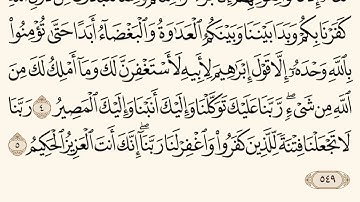 كَفَرۡنَا بِكُمۡ وَبَدَا بَيۡنَنَا وَبَيۡنَكُمُ ٱلۡعَدَٰوَةُ وَٱلۡبَغۡضَآءُ أَبَدًا حَتَّىٰ تُؤۡمِنُواْ
بِٱللَّهِ وَحۡدَهُۥٓ إِلَّا قَوۡلَ إِبۡرَٰهِيمَ لِأَبِيهِ لَأَسۡتَغۡفِرَنَّ لَكَ وَمَآ أَمۡلِكُ لَكَ مِنَ
ٱللَّهِ مِن شَيۡءٖۖ رَّبَّنَا عَلَيۡكَ تَوَكَّلۡنَا وَإِلَيۡكَ أَنَبۡنَا وَإِلَيۡكَ ٱلۡمَصِيرُ ٤ رَبَّنَا
لَا تَجۡعَلۡنَا فِتۡنَةٗ لِّلَّذِينَ كَفَرُواْ وَٱغۡفِرۡ لَنَا رَبَّنَآۖ إِنَّكَ أَنتَ ٱلۡعَزِيزُ ٱلۡحَكِيمُ ٥
٥٤٩